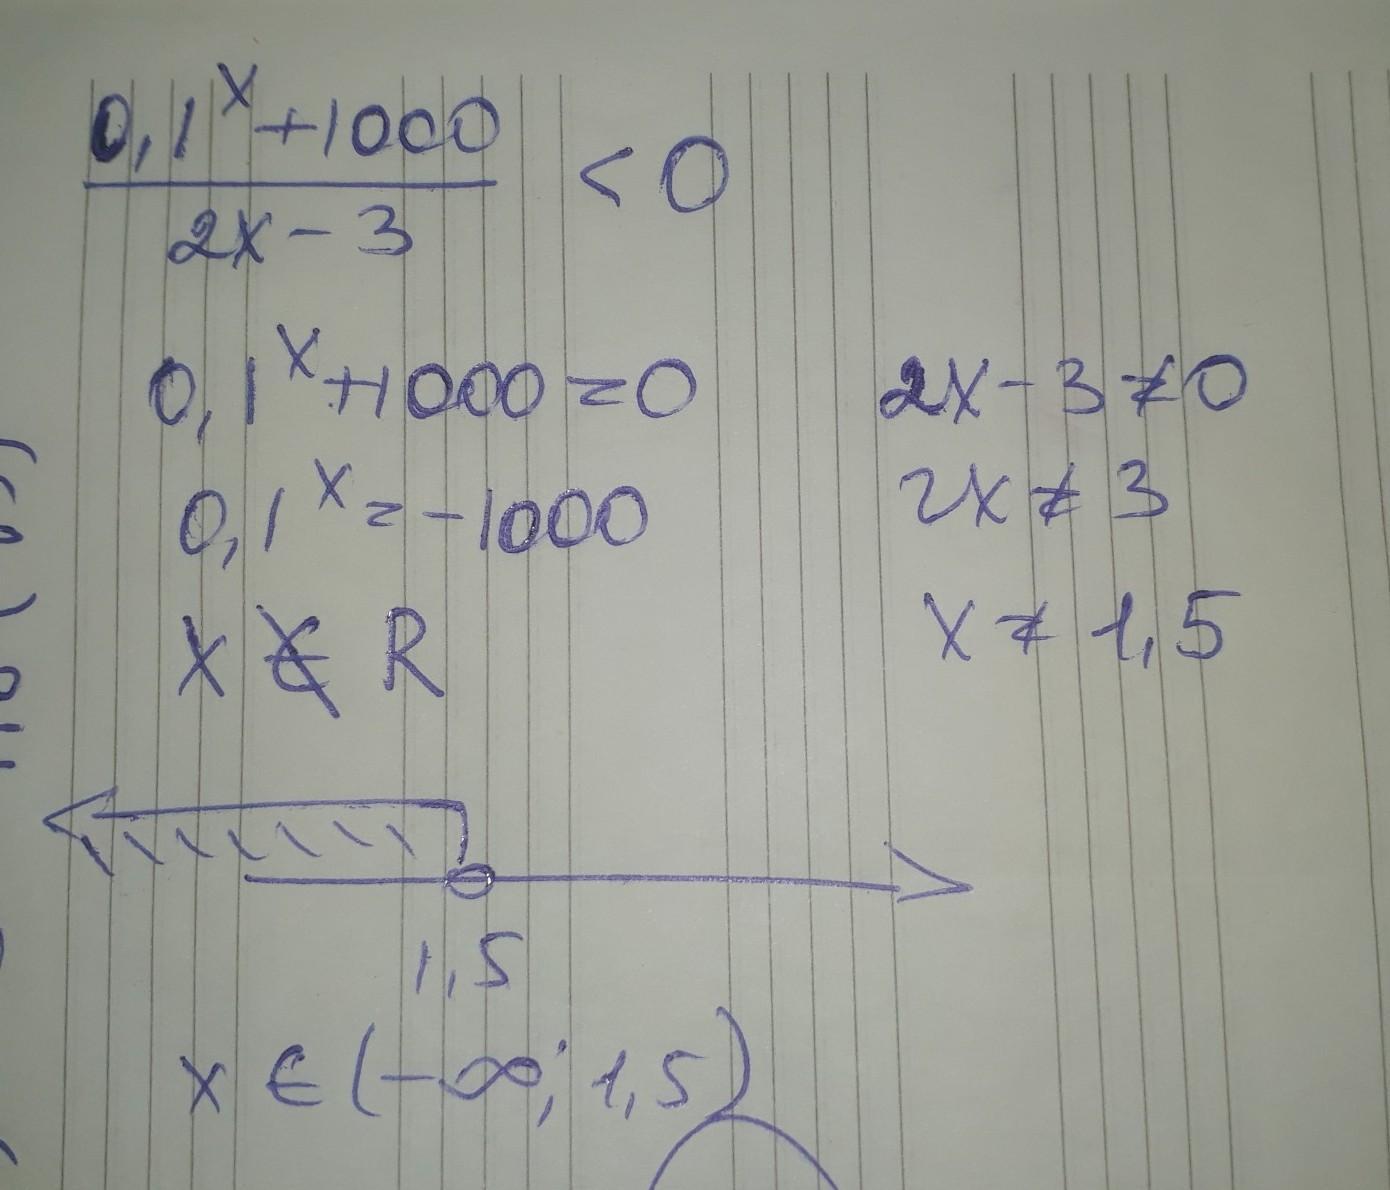 0,1^x+1000
2x-3
<0
0,1^x+1000=0
0,1^x=-1000
x ∉ R
2x-3≠0
2x≠3
x≠1,5
1,5
x∈(-∞;1,5)